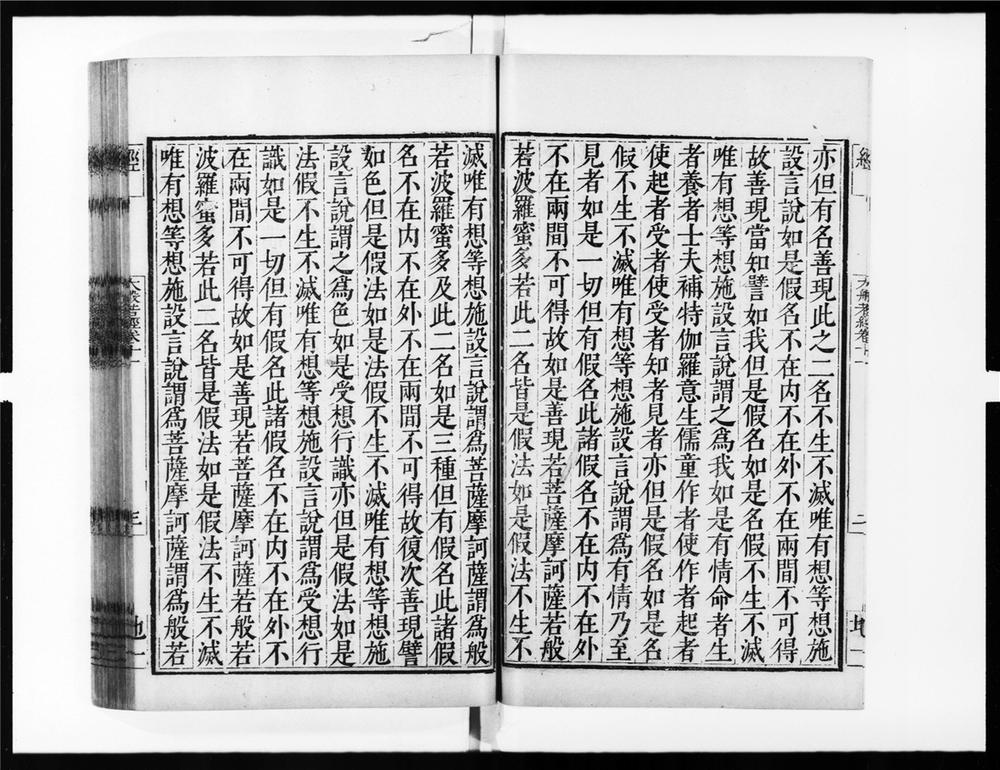 經
大般若經卷十一
二
地一
亦但有名善現此之二名不生不滅唯有想等想施
設言說如是假名不在内不在外不在兩間不可得
故善現當知譬如我但是假名如是名假不生不滅
唯有想等想施設言說謂之爲我如是有情命者生
者養者士夫補特伽羅意生儒童作者使作者起者
使起者受者使受者知者見者亦但是假名如是名
假不生不滅唯有想等想施設言說謂爲有情乃至
見者如是一切但有假名此諸假名不在内不在外
不在兩間不可得故如是善現若菩薩摩訶薩若般
若波羅蜜多若此二名皆是假法如是假法不生不
滅唯有想等想施設言說謂爲菩薩摩訶薩謂爲般
若波羅蜜多及此二名如是三種但有假名此諸假
名不在内不在外不在兩間不可得故復次善現譬
如色但是假法如是法假不生不滅唯有想等想施
設言說謂之爲色如是受想行識亦但是假法如是
法假不生不滅唯有想等想施設言說謂爲受想行
識如是一切但有假名此諸假名不在内不在外不
在兩間不可得故如是善現若菩薩摩訶薩若般若
波羅蜜多若此二名皆是假法如是假法不生不滅
唯有想等想施設言說謂爲菩薩摩訶薩謂爲般若
經
大般若經卷十一
三
地一